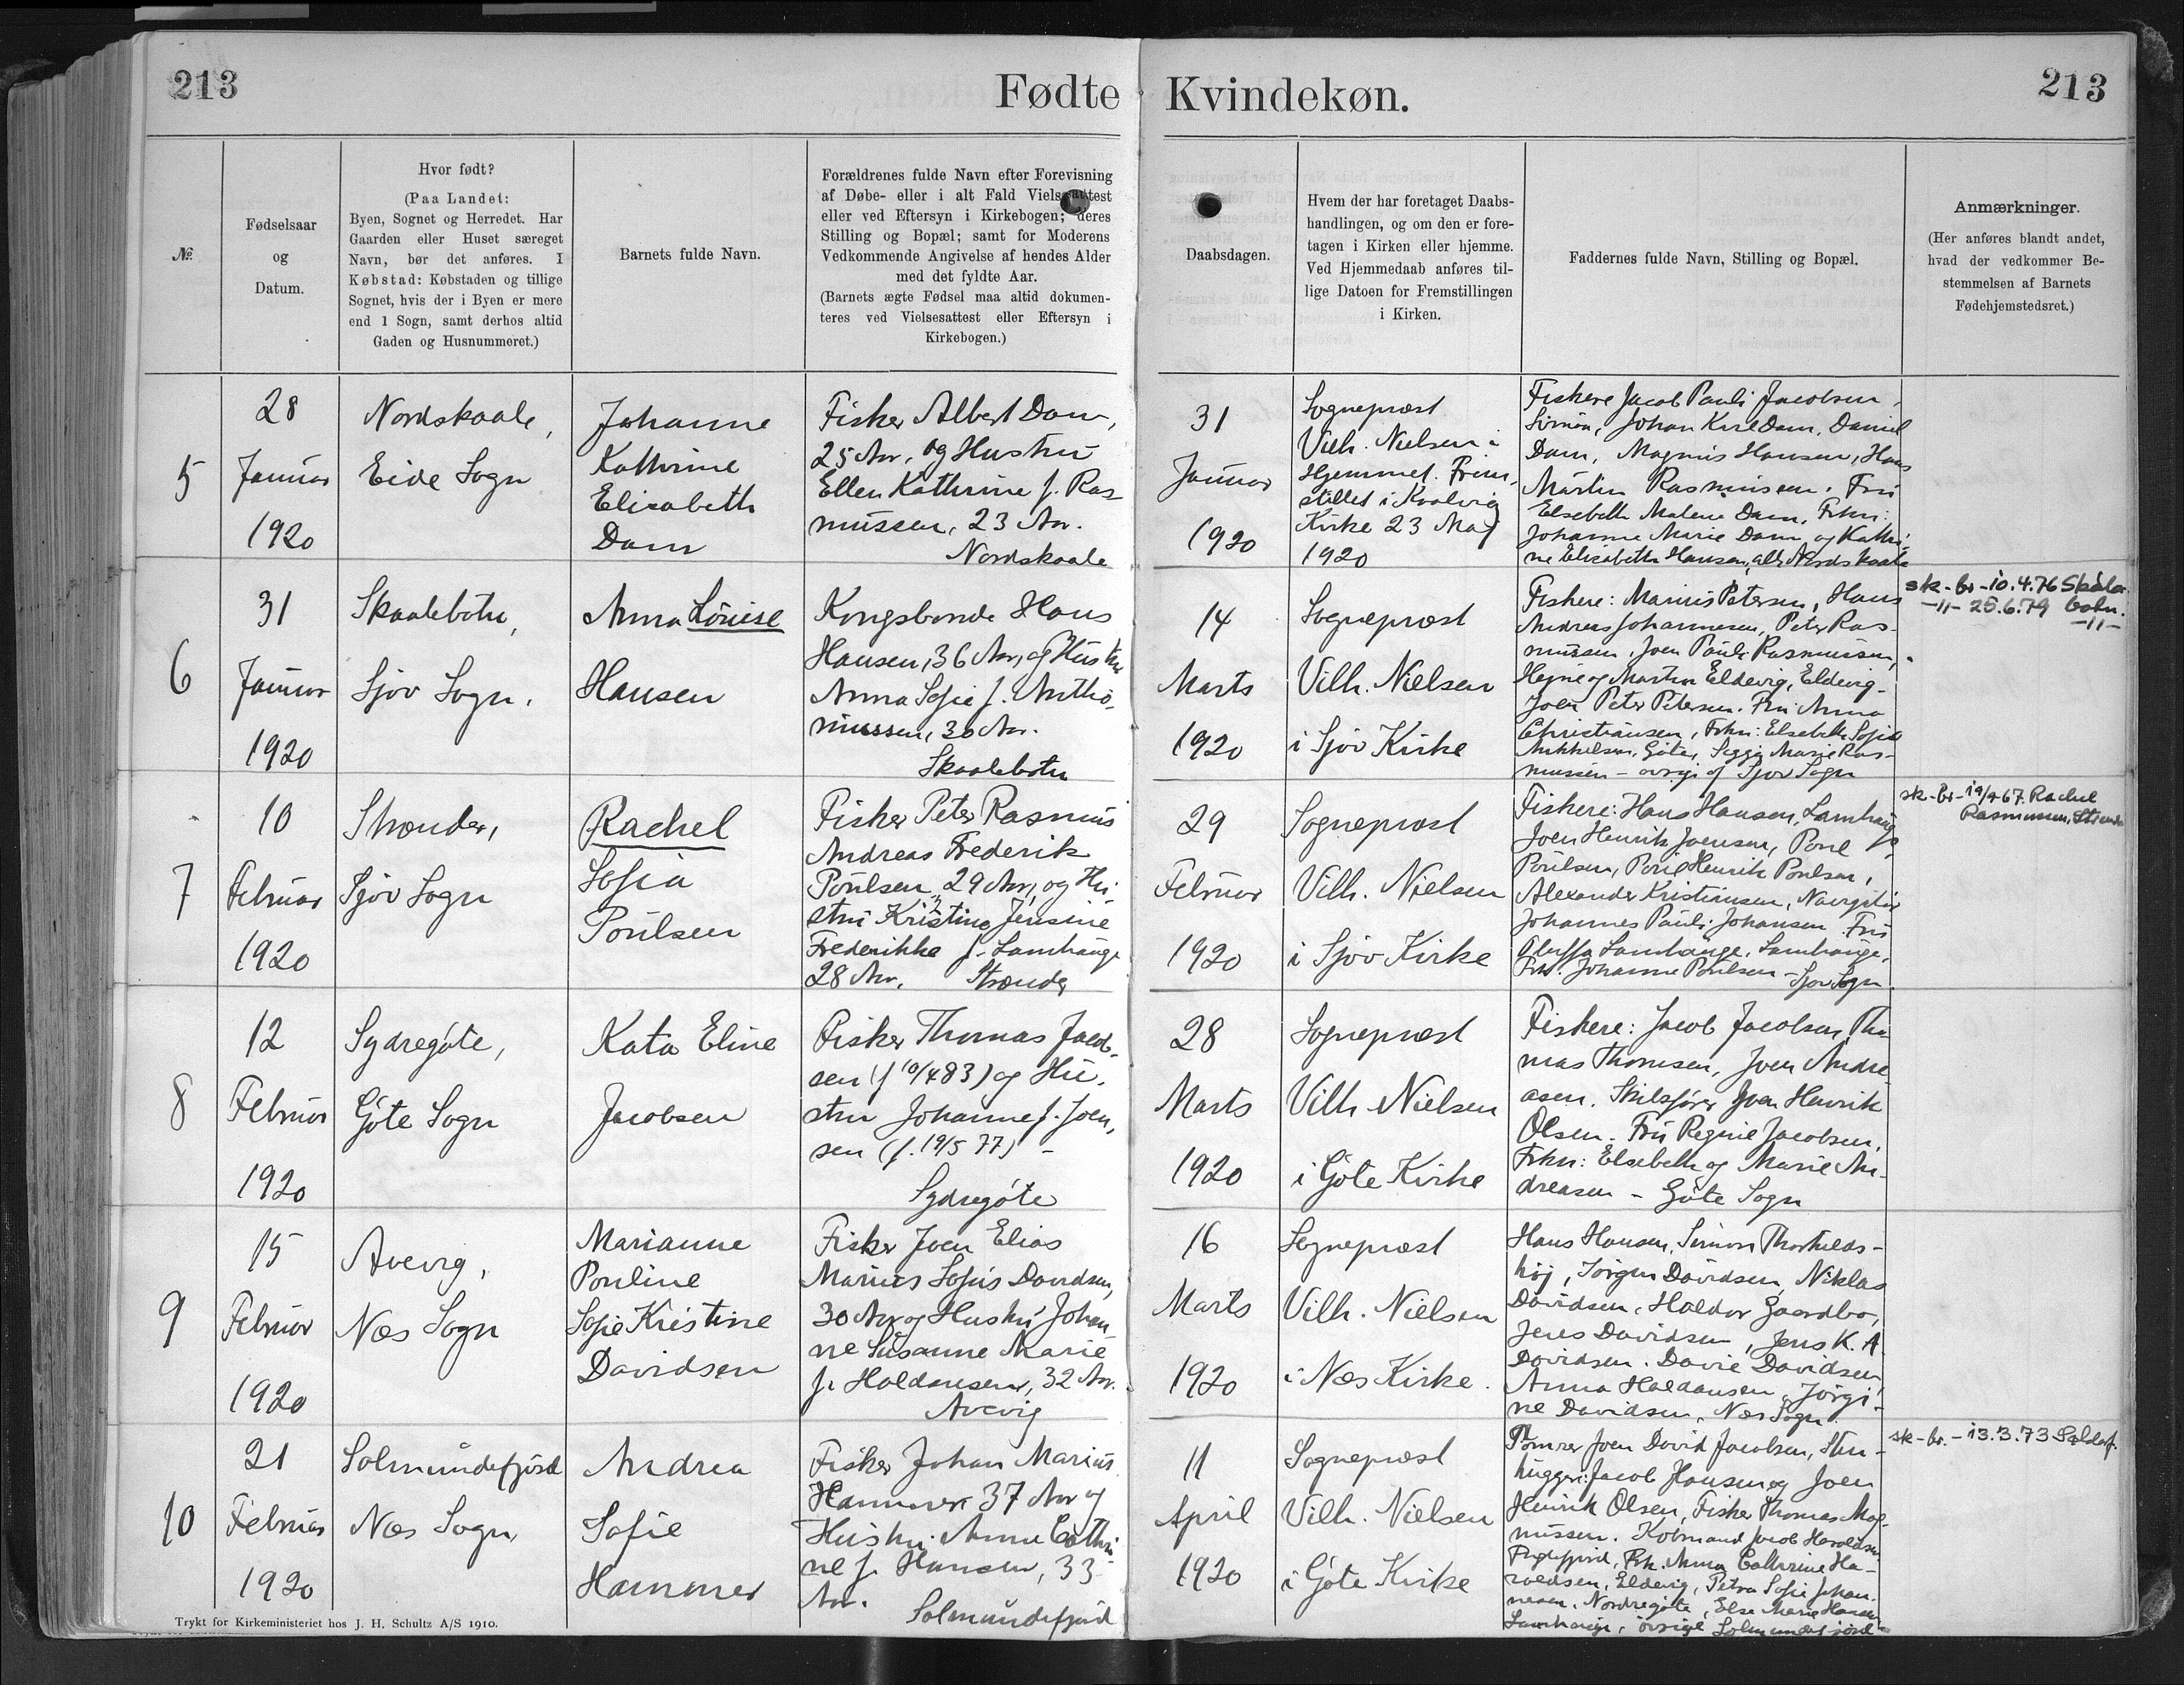 213
Fødte
Kvindekøn.
213
№
Fødselsaar
og
Datum.
Hvor født?
(Paa Landet:
Byen, Sognet og Herredet. Har
Gaarden eller Huset særeget
Navn, bør det anføres. I
Købstad: Købstaden og tillige
Sognet, hvis der i Byen er mere
end 1 Sogn, samt derhos altid
Gaden og Husnummeret.)
Barnets fulde Navn.
Forældrenes fulde Navn efter Forevisning
af Døbe- eller i alt Fald Vielsesattest
eller ved Eftersyn i Kirkebogen; deres
Stilling og Bopæl; samt for Moderens
Vedkommende Angivelse af hendes Alder
med det fyldte Aar.
(Barnets ægte Fødsel maa altid dokumen-
teres ved Vielsesattest eller Eftersyn i
Kirkebogen.)
Daabsdagen.
Hvem der har foretaget Daabs-
handlingen, og om den er fore-
tagen i Kirken eller hjemme.
Ved Hjemmedaab anføres til-
lige Datoen for Fremstillingen
i Kirken.
Faddernes fulde Navn, Stilling og Bopæl.
Anmærkninger.
(Her anføres blandt andet,
hvad der vedkommer Be-
stemmelsen af Barnets
Fødehjemstedsret.)
5
28
Januar
1920
Nordskaale,
Eide Sogn
Johanne
Kathrine
Elisabeth
Dam
Fisker Albert Dam,
25 Aar, og Hustru
Ellen Kathrine f. Ras-
mussen, 23 Aar.
Nordskaale
31
Januar
1920
Sognepræst
Vilh. Nielsen i
Hjemmet. Frem-
stillet i Kvalvig
Kirke 23 Maj
1920
Fiskere Jacob Pauli Jacobsen,
Simon, Johan Karl Dam, Daniel
Dam, Magnus Hansen, Hans
Martin Rasmussen. Fru
Elsebeth Malene Dam, Frkn:
Johanne Marie Dam og Kathri-
ne Elisabeth Hansen, alle Nordskaale
6
31
Januar
1920
Skaalebotn,
Sjov Sogn.
Anna Louise
Hansen
Kongsbonde Hans
Hansen, 36 Aar, og Hustru
Anna Sofie f. Antho-
niussen, 30 Aar.
Skaalebotn
14
Marts
1920
Sognepræst
Vilh. Nielsen
i Sjov Kirke
Fiskere: Marius Petersen, Hans
Andreas Johannesen, Peter Ras-
mussen, Joen Pauli Rasmussen,
Hejne og Martin Eldevig, Eldevig-
Joen Peter Petersen. Fru Anna
Christiansen, Frkn: Elsebeth Sofie
Mikkelsen, Gøte, Marie Ras-
mussen - øvrige af Sjov Sogn
sk-br-10.4.76 Skála
-11- 25.6.79 botn.
-11-
7
10
Februar
1920
Strænder,
Sjov Sogn
Rachel
Sofia
Poulsen
Fisker Peter Rasmus
Andreas Frederik
Poulsen, 29 Aar, og Hu-
stru Kristine Jensine
Frederikke f. Lamhauge
28 Aar. Strænder
29
Februar
1920
Sognepræst
Vilh. Nielsen
i Sjov Kirke
Fiskere: Hans Hansen, Lamhauge,
Joen Henrik Joensen, Poul
Poulsen, Poul Henrik Poulsen,
Alexander Kristiansen, Navigatør
Johannes Pauli Johansen. Fru
Oluffa Lamhauge, Lamhauge,
Frk. Johanne Poulsen - Sjov Sogn.
sk-br-19/4 67. Rachel
Rasmussen,
8
12
Februar
1920
Sydregøte,
Gøte Sogn
Kata Eline
Jacobsen
Fisker Thomas Jacob-
sen (f 10/4 83) og Hu-
stru Johanne f. Joen-
sen (f. 19/5 77) -
Sydregøte
28
Marts
1920
Sognepræst
Vilh Nielsen
i Gøte Kirke
Fiskere: Jacob Jacobsen, Tho-
mas Thomsen, Joen Andre-
asen. Skibsfører Joen Henrik
Olsen. Fru Regine Jacobsen,
Frkn: Elsebeth og Marie An-
dreasen - Gøte Sogn
9
15
Februar
1920
Avevig,
Næs Sogn
Marianne
Pouline
Sofie Kristine
Davidsen
Fisker Joen Elias
Marius Sofus Davidsen,
30 Aar og Hustru Johan-
ne Susanne Marie
f. Haldansen, 32 Aar.
Avevig
16
Marts
1920
Sognepræst
Vilh. Nielsen
i Næs Kirke.
Hans Hansen, Simon Thorkilds-
høj, Jørgen Davidsen, Niklas
Davidsen, Haldor Gaardbo,
Jens Davidsen, Jens K. A
Davidsen. Davie Davidsen,
Anna Haldansen, Jørgi-
ne Davidsen, Næs Sogn.
10
21
Februar
1920
Solmundefjord
Næs Sogn
Andrea
Sofie
Hammer
Fisker Johan Marius
Hammer 37 Aar og
Hustru Anna Cathri-
ne f. Hansen, 33
Aar. Solmundefjord
11
April
1920
Sognepræst
Vilh. Nielsen
i Gøte Kirke
Tømrer Joen David Jacobsen, Sten-
huggere: Jacob Hansen og Joen
Henrik Olsen, Fisker Thomas Mag-
nussen. Købmand Jacob Haraldsen
Fuglefjord, Frk. Anna Cathrine Ha-
raldsen, Eldevig, Petra Sofie Johan-
nesen, Nordregøte, Else Marie Hansen
Lamhauge, øvrige Solmundefjord
sk-br.- 13.3.73 Saldaf.
Trykt for Kirkeministeriet hos J. H. Schultz A/S 1910.